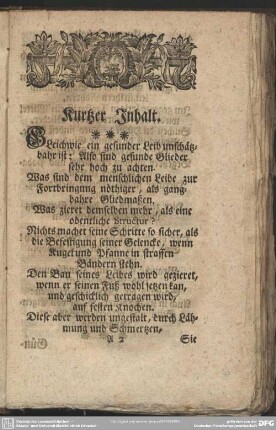 Kurtzer Inhalt.
* * *
GLeichwie ein gesunder Leib unschätz-
bahr ist: Also sind gesunde Glieder
sehr hoch zu achten.
Was sind dem menschlichen Leibe zur
Fortbringung nöthiger, als gang-
bahre Gliedmaßen.
Was zieret demselben mehr, als eine
ordentliche Structur?
Nichts machet seine Schritte so sicher, als
die Befestigung seiner Gelencke, wenn
Kugel und Pfanne in straffen
Bändern stehn.
Den Bau seines Leibes wird gezieret,
wenn er seinen Fuß wohl setzen kan,
und geschicklich getragen wird,
auf festen Knochen.
Diese aber werden ungestalt, durch Läh-
mung und Schmertzen.
A 2
Sie